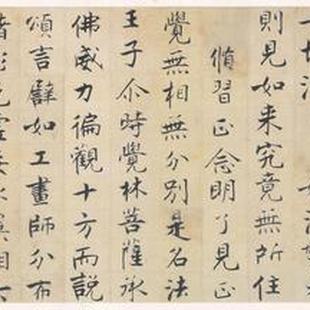 則見如来究竟無所住
脩習正念明了見正
覺無相無分別是名法
王子尒時覺林菩薩承
佛威力徧觀十方而說
頌言譬如工畫師分布
諸彩色虛妄取異相大